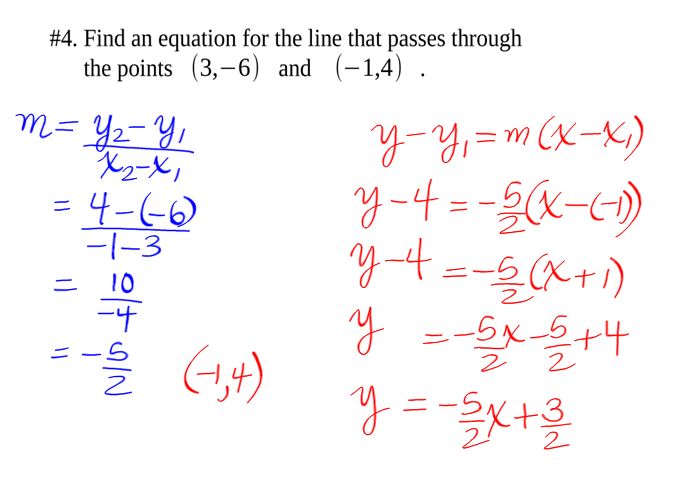 #4. Find an equation for the line that passes through
the points (3,−6) and (−1,4) .
m = y₂ − y₁ / x₂ − x₁
= 4 − (−6) / −1 − 3
= 10 / −4
= − 5/2
(−1,4)
y − y₁ = m(x − x₁)
y − 4 = − 5/2 (x − (−1))
y − 4 = − 5/2 (x + 1)
y = − 5/2 x − 5/2 + 4
y = − 5/2 x + 3/2